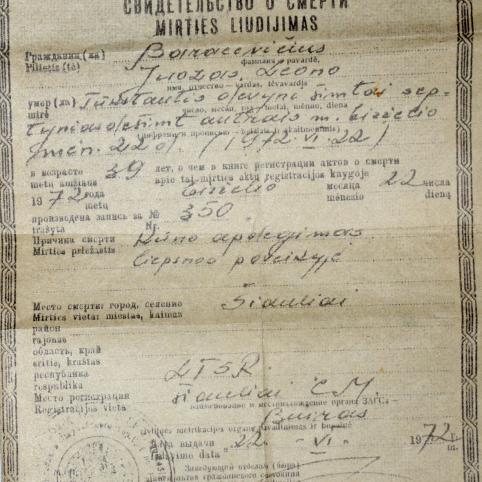 СВИДЕТЕЛЬСТВО О СМЕРТИ
MIRTIES LIUDIJIMAS
Гражданин (ка) Baracevičius
Pilietis (tė) фамилия — pavardė,
Juozas, Leono
имя, отчество — vardas, tėvavardis
умер (ла) Tūkstantis devyni šimtai sep-
mirė число, месяц, год — metai, mėnuo, diena
tyniasdešimt antrais m. birželio
(цифрами и прописью — žodžiais ir skaitmenimis)
mėn. 22 d. (1972. VI. 22)
в возрасте 39 лет, о чем в книге регистрации актов о смерти
metų amžiaus apie tai mirties aktų registracijos knygoje
1972 года birželio месяца 22 числа
metų mėnesio dieną
произведена запись за № 350
įrašyta Nr.
Причина смерти Kūno apdegimas
Mirties priežastis liepsnos poveikyje
Место смерти: город, селение Šiauliai
Mirties vieta: miestas, kaimas
район
rajonas
область, край
sritis, kraštas
республика LTSR
respublika
Место регистрации Šiauliai CM
Registracijos vieta наименование и местонахождение органа ЗАГСа —
Biuras
civilinės metrikacijos organo pavadinimas ir buveinė
Дата выдачи „22 “ VI. 1972 г.
Išdavimo data m.
Заведующий отделом (бюро)
записи актов гражданского состояния